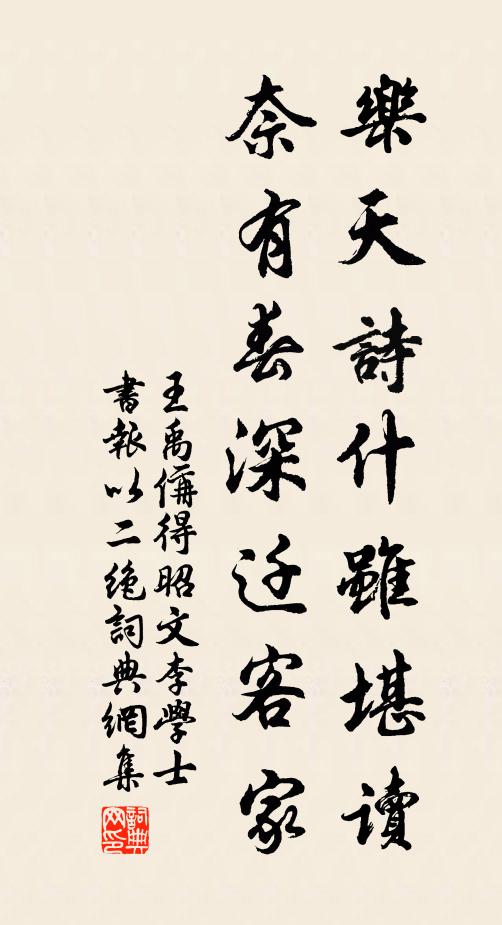 樂天詩什雖堪讀
奈有春深迁客家
王禹偁得昭文李學士
書報以二絶詞典網集
詞典网印